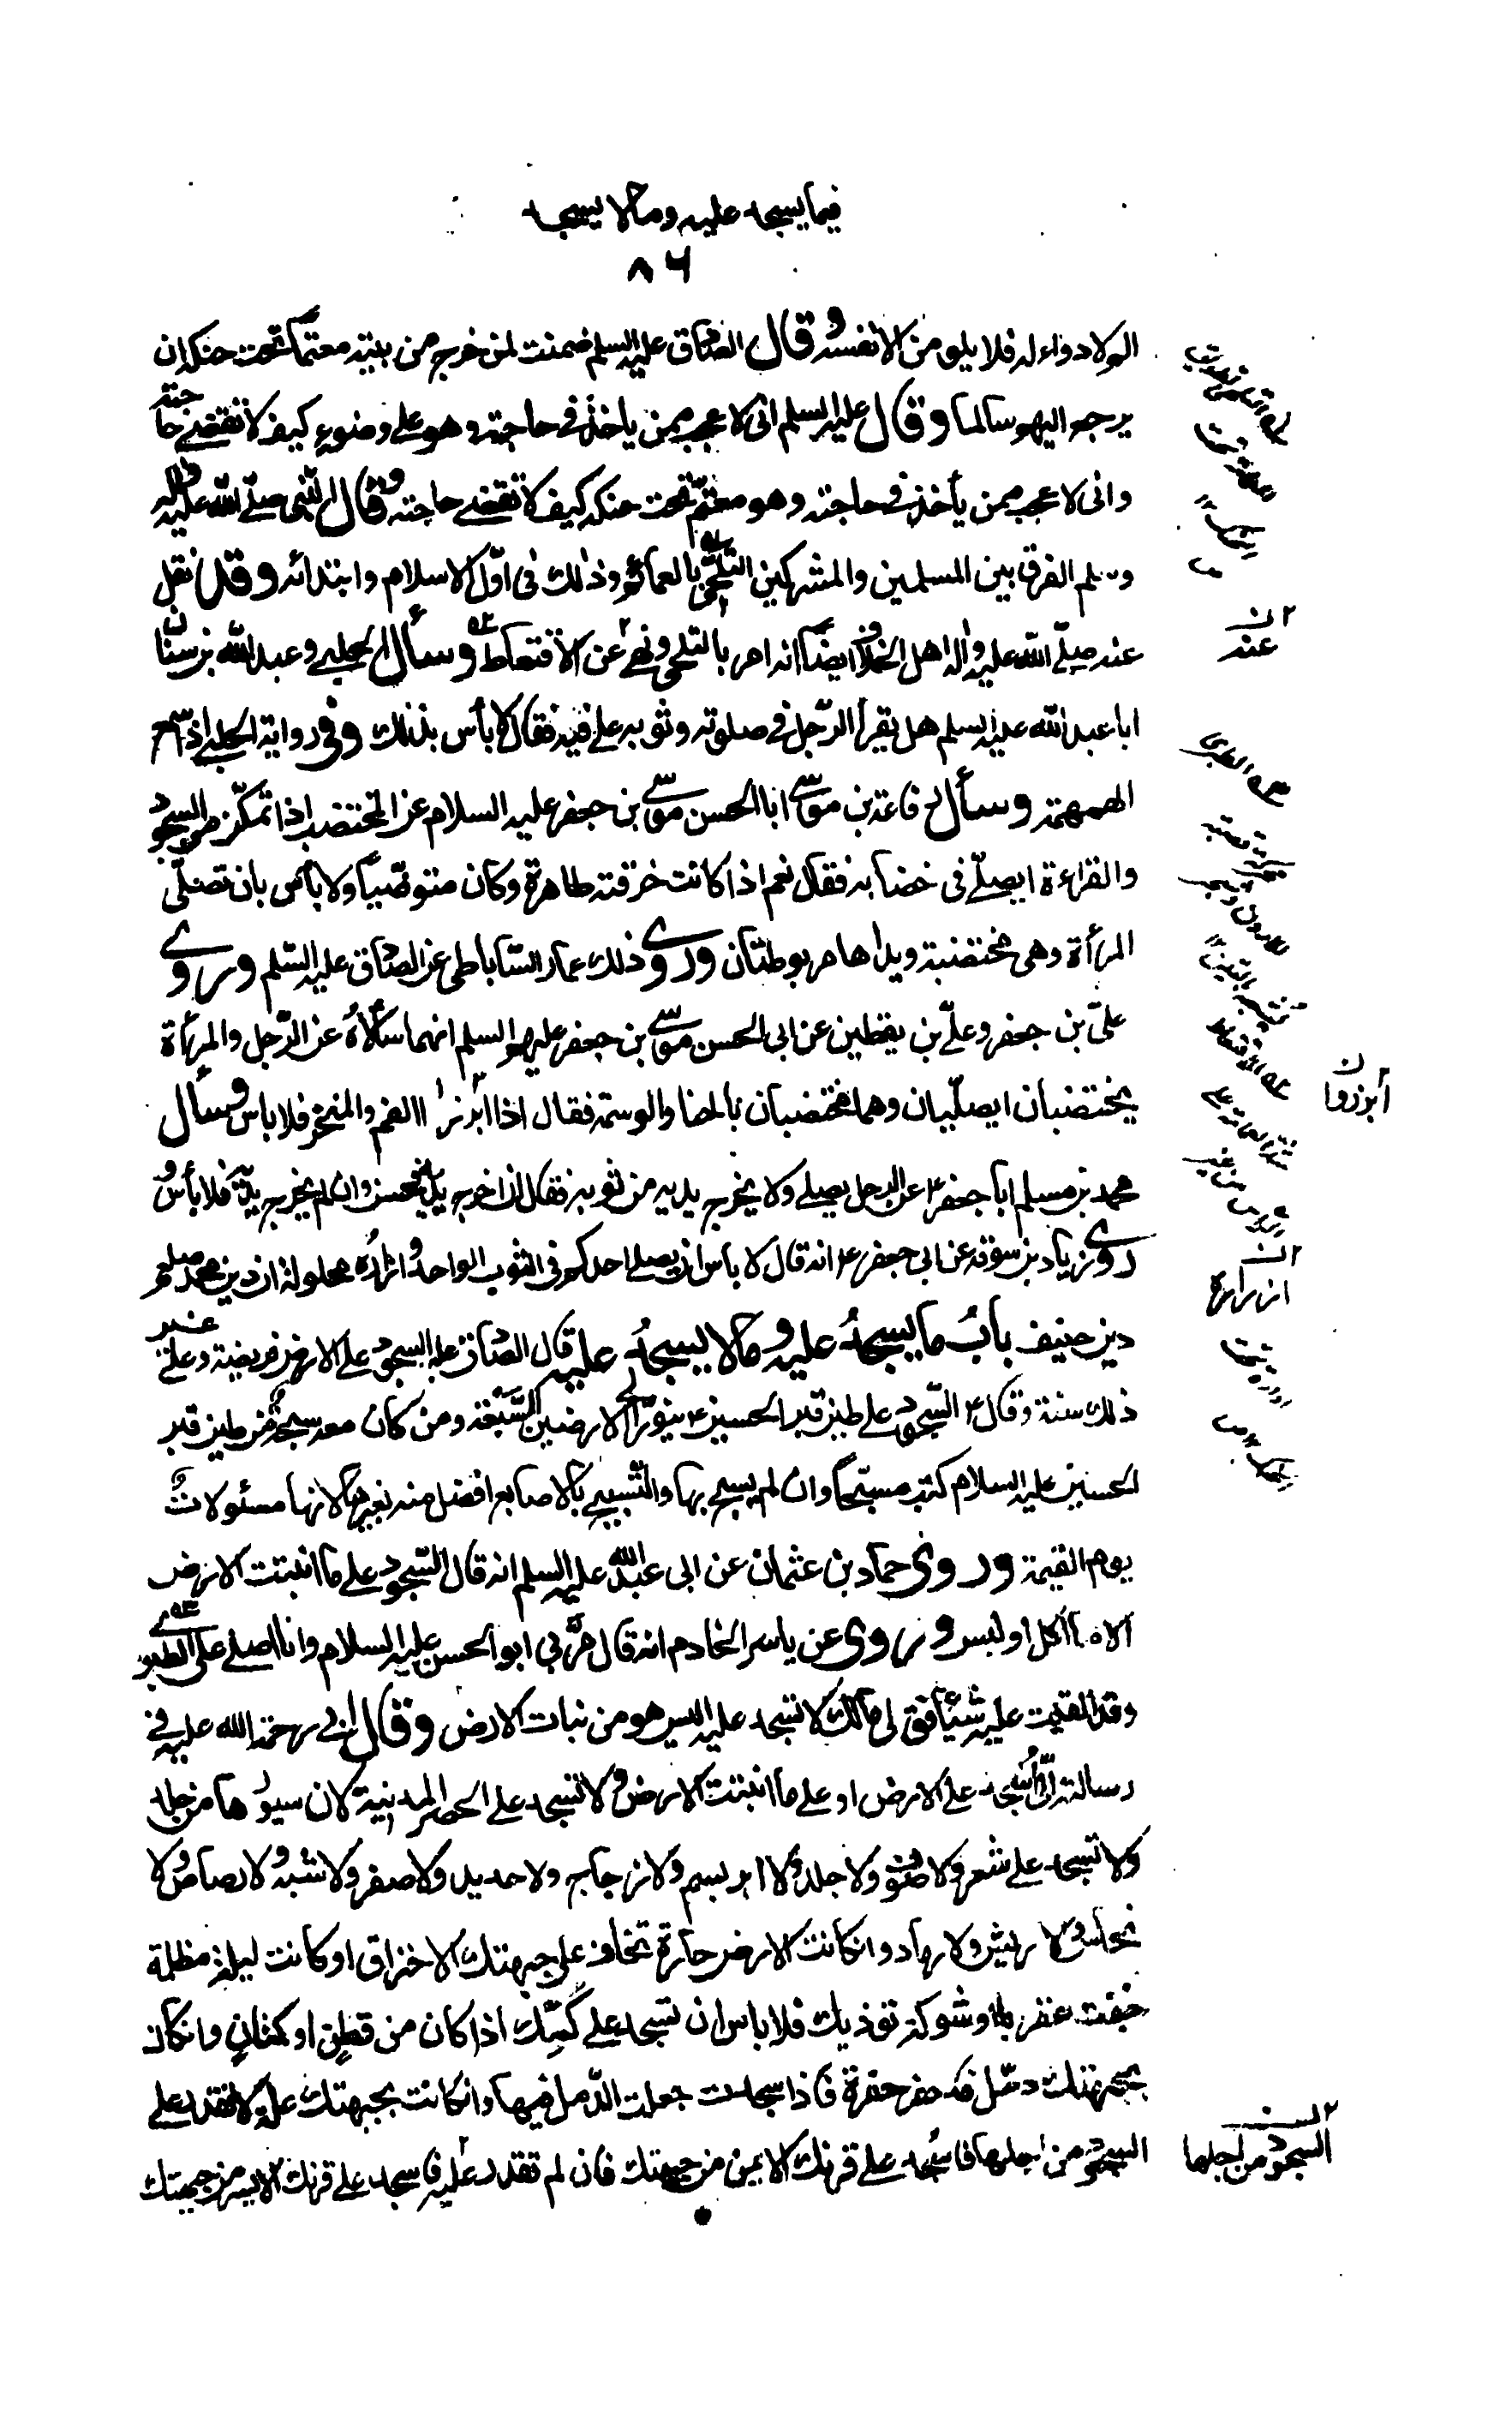 فيما يسجد عليه وما لا يسجد
٨٦
الا دواء له فلا يلومن الا نفسه وقال الصادق عليه السلم ضمنت لمن خرج من بيته معتما تحت حنكه ان
يرجع اليهم سالما وقال عليه السلم انى لاعجب ممن ياخذ فى حاجته وهو على وضوء كيف لا تقضى حاجته
وانى لاعجب ممن يأخذ فى حاجته وهو معتم تحت حنكه كيف لا تقضى حاجته وقال النبى صلى الله عليه واله
وسلم الفرق بين المسلمين والمشركين التلحى بالعمائم وذلك فى اول الاسلام وابتدائه وقد نقل
عنه صلى الله عليه واله اهل الخلاف ايضا انه امر بالتلحى ونهى عن الاقتعاط وسأل الحلبى وعبد الله بن سنان
ابا عبد الله عليه السلم هل يقرأ الرجل فى صلوته وثوبه على فيه فقال لا بأس بذلك وفى رواية الحلبى اذا سمع
الهمهمة وسأل رفاعة بن موسى ابا الحسن موسى بن جعفر عليه السلام عن المختضب اذا تمكن من السجود
والقراءة ايصلى فى خضابه فقال نعم اذا كانت خرقته طاهرة وكان متوضيا ولا بأس بان تصلى
المرأة وهى مختضبة ويداها مربوطتان وروى ذلك عمار الساباطى عن الصادق عليه السلم وروى
على بن جعفر وعلى بن يقطين عن ابى الحسن موسى بن جعفر عليهم السلم انهما سألاه عن الرجل والمرأة
يختضبان ايصليان وهما مختضبان بالحنا والوسمة فقال اذا ابرزا الفم والمنخر فلا باس وسأل
محمد بن مسلم ابا جعفر ع عن الرجل يصلى ولا يخرج يديه من ثوبه فقال ان اخرج يديه فحسن وان لم يخرج يديه فلا بأس و
روى زياد بن سوقة عن ابى جعفر ع انه قال لا باس ان يصلى احدكم فى الثوب الواحد وازراره محلولة ان دين محمد صلعم
دين حنيف باب ما يسجد عليه وما لا يسجد عليه قال الصادق عليه السجود على الارض فريضة وعلى غير
ذلك سنة وقال ع السجود على طين قبر الحسين ع ينور الى الارضين السبعة ومن كان معه سبحة من طين قبر
الحسين عليه السلام كتب مسبحا وان لم يسبح بها والتسبيح بالاصابع افضل منه بغيرها لانها مسئولات
يوم القيمة وروى حماد بن عثمان عن ابى عبد الله عليه السلم انه قال السجود على ما انبتت الارض
الا ما اكل او لبس وروى عن ياسر الخادم انه قال مر بى ابو الحسن عليه السلام وانا اصلى على الطبرى
وقد القيت عليه شيئا فقال لى مالك لا تسجد عليه اليس هو من نبات الارض وقال ابى رحمة الله عليه فى
رسالته الى اسجد على الارض او على ما انبتت الارض ولا تسجد على الحصر المدنية لان سيورها من جلد
ولا تسجد على شعر ولا صوف ولا جلد ولا ابريسم ولا زجاج ولا حديد ولا صفر ولا شبه ولا رصاص ولا
نحاس ولا ريش ولا رماد وان كانت الارض حارة تخاف على جبهتك الاحتراق او كانت ليلة مظلمة
خفت عقربا او شوكة توذيك فلا باس ان تسجد على كمك اذا كان من قطن او كتان وان كان
بجبهتك دمل فاحفر حفرة فاذا سجدت جعلت الدمل فيها وان كانت بجبهتك علة لا تقدر على
السجود من اجلها فاسجد على قرنك الايمن من جبهتك فان لم تقدر عليه فاسجد على قرنك الايسر من جبهتك
عند
ابرزوا
ازراره
السجود من اجلها